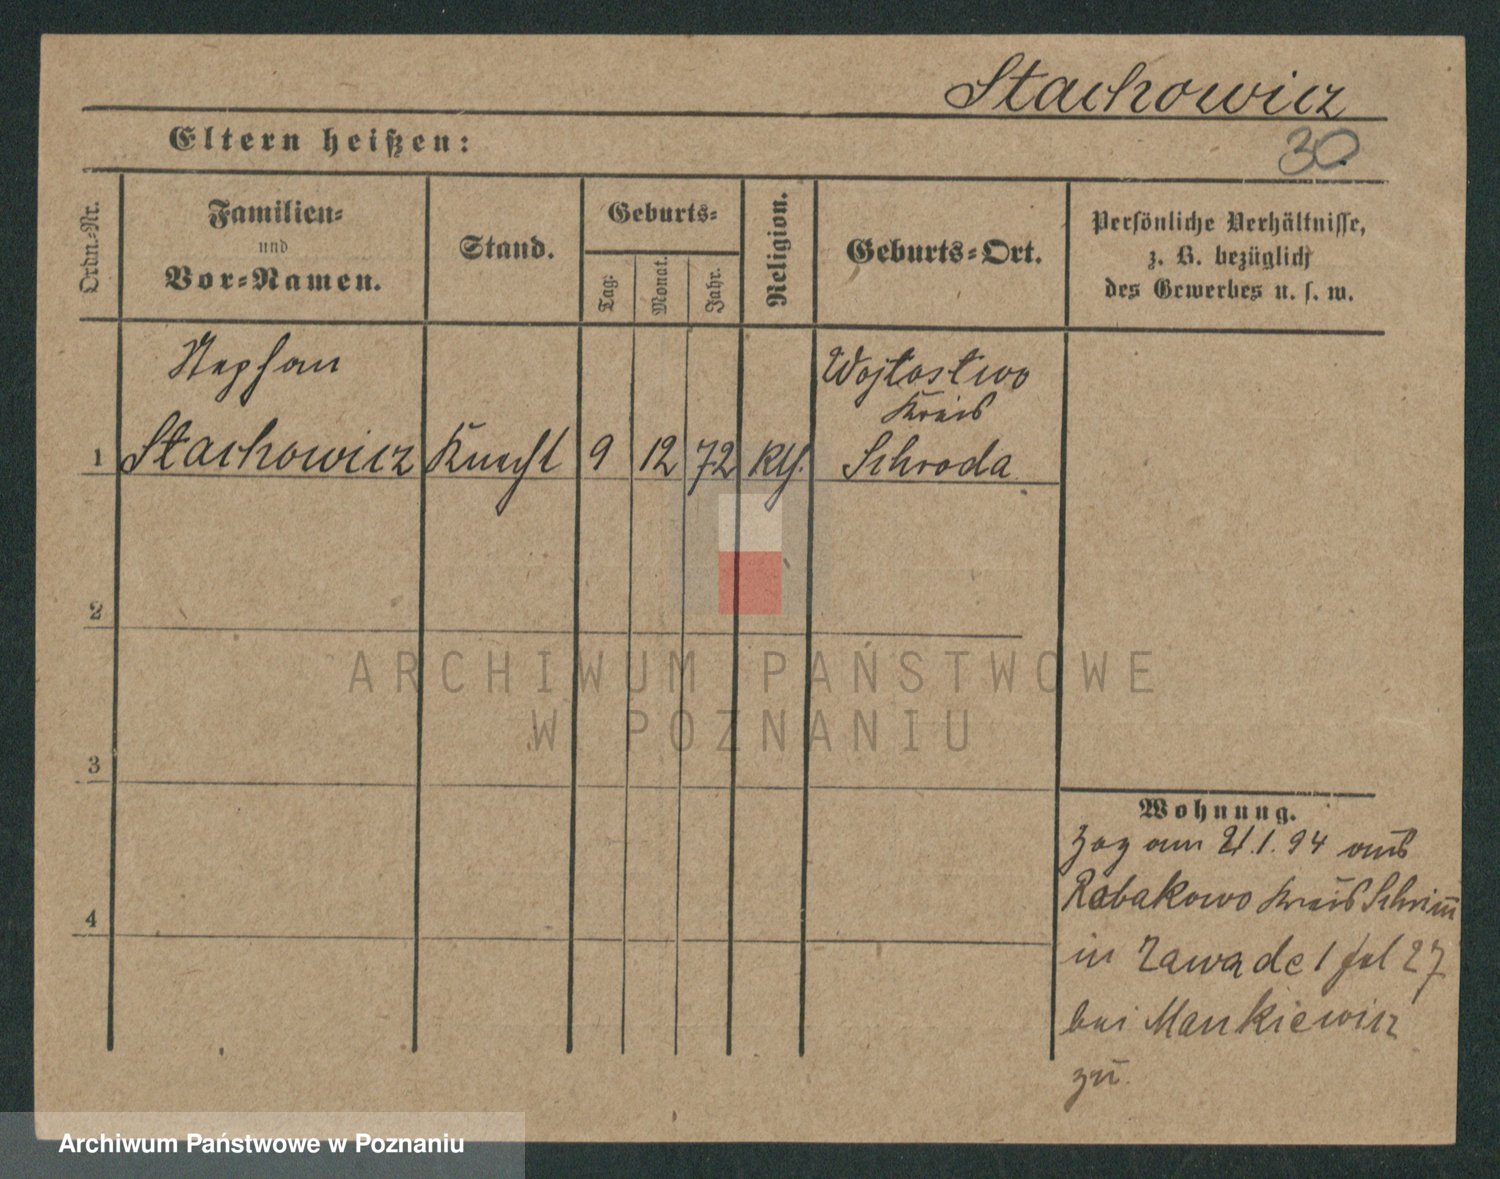 Stachowicz
30
Eltern heißen:
Ordn.-Nr.
Familien-
und
Vor-Namen.
Stand.
Geburts-
Tag:
Monat.
Jahr.
Religion.
Geburts-Ort.
Persönliche Verhältnisse,
z. B. bezüglich
des Gewerbes u. s. w.
Stephan
Wojtostwo
Kreis
1 Stachowicz Knecht 9 12 72 kth. Schroda
2
3
4
Wohnung.
zog am 21.1.94 aus
Robakowo Kreis Schrimm
in Zawade 1 27
bei Mankiewicz
zu.
ARCHIWUM PAŃSTWOWE
W POZNANIU
Archiwum Państwowe w Poznaniu